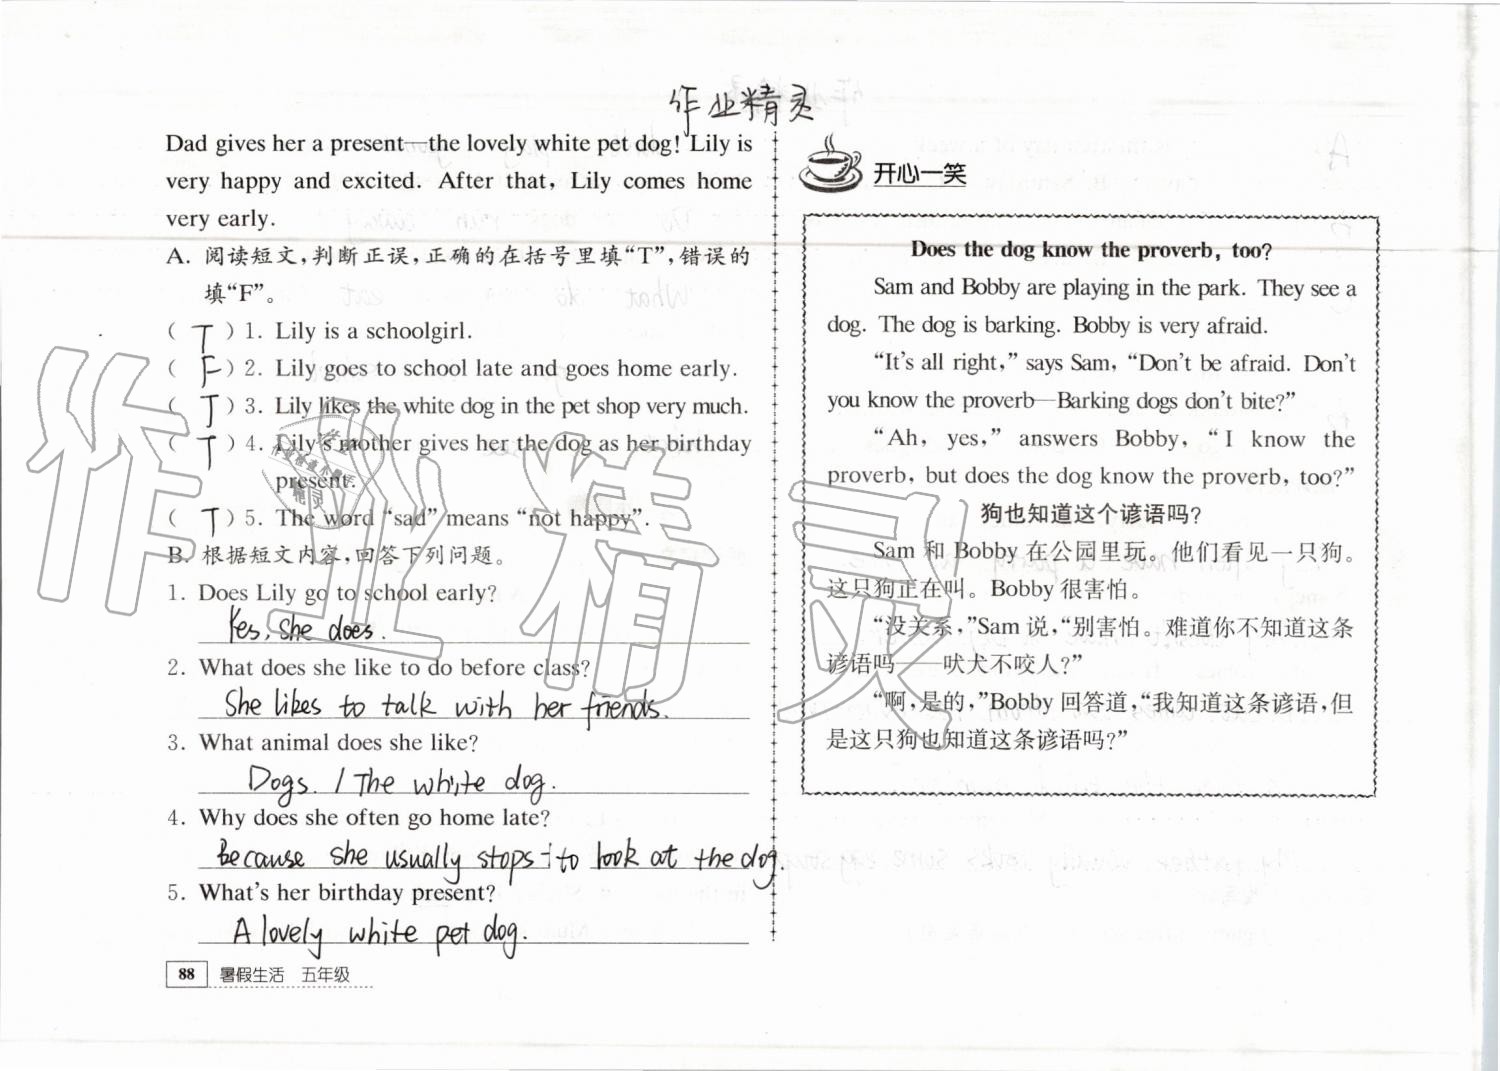 作业精灵
Dad gives her a present—the lovely white pet dog! Lily is
very happy and excited. After that, Lily comes home
very early.
A. 阅读短文,判断正误,正确的在括号里填“T”,错误的
填“F”。
( T ) 1. Lily is a schoolgirl.
( F ) 2. Lily goes to school late and goes home early.
( T ) 3. Lily likes the white dog in the pet shop very much.
( T ) 4. Lily's mother gives her the dog as her birthday
present.
( T ) 5. The word “sad” means “not happy”.
B. 根据短文内容,回答下列问题。
1. Does Lily go to school early?
Yes, she does.
2. What does she like to do before class?
She likes to talk with her friends.
3. What animal does she like?
Dogs. / The white dog.
4. Why does she often go home late?
Because she usually stops to look at the dog.
5. What's her birthday present?
A lovely white pet dog.
88 暑假生活 五年级
开心一笑
Does the dog know the proverb, too?
Sam and Bobby are playing in the park. They see a
dog. The dog is barking. Bobby is very afraid.
“It's all right,” says Sam, “Don't be afraid. Don't
you know the proverb—Barking dogs don't bite?”
“Ah, yes,” answers Bobby, “I know the
proverb, but does the dog know the proverb, too?”
狗也知道这个谚语吗?
Sam 和 Bobby 在公园里玩。他们看见一只狗。
这只狗正在叫。Bobby 很害怕。
“没关系,”Sam 说,“别害怕。难道你不知道这条
谚语吗——吠犬不咬人?”
“啊,是的,”Bobby 回答道,“我知道这条谚语,但
是这只狗也知道这条谚语吗?”
作业精灵